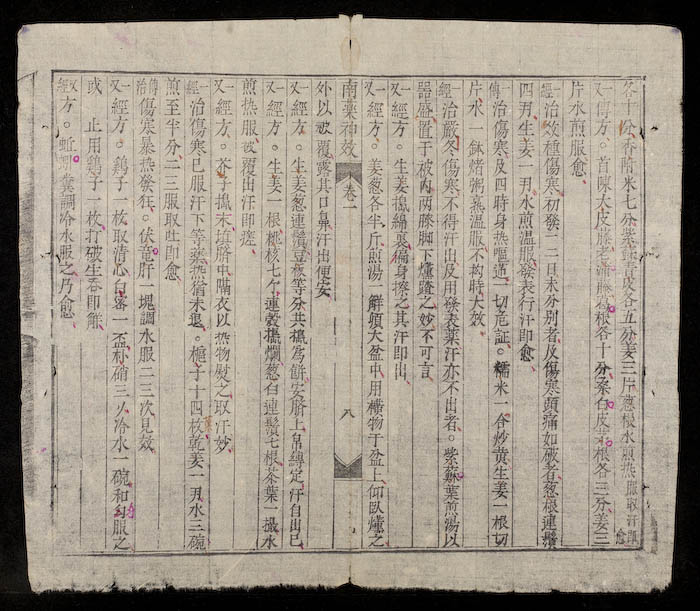 各十分香附米七分紫蘇青皮各五分姜三片葱根水煎热服取汗即愈
又一傳方。首陳大皮藤老蒲藤葛根各十分桑白皮茅根各三分姜三
片水煎服愈
經一治效種傷寒初發一二日未分別者及傷寒頭痛如破者葱根連鬚
四刄生姜一刄水煎温服發表行汗即愈
傳一治傷寒及四時身热喘逆一切危証。糯米一合炒黄生姜一根切
片水一鉢煑粥熟温服不拘時大效
經一治嚴冬傷寒不得汗出及用發表藥汗亦不出者。紫蘇葉煎湯以
器盛置于被內两膝脚下燻蹬之妙不可言
又一經方。生姜搗綿裹徧身擦之其汗即出
又一經方。姜葱各半斤煎湯一鮮傾大盆中用橫物于盆上仰臥燻之
南藥神效 卷一 八
外以被覆露其口鼻汗出便安
又一經方。生姜葱連鬚豆豉等分共搗為餅安臍上帛縛定汗自出已
又一經方。生姜一根桃核七个連殼搗爛葱白連鬚七根茶葉一撮水
煎热服被覆出汗即瘥
又一經方。芥子搗末填臍中隔衣以热物熨之取汗妙
經一治傷寒已服汗下等藥热猶未退。梔子十四枚乾姜一刄水三碗
煎至半分二三服取吐即愈
傳治傷寒暴热發狂。伏竜肝一塊調水服二三次見效
又一經方。鷄子一枚取清心白蜜一盃朴硝三刄冷水一碗和勻服之
或止用鷄子一枚打破生吞即觧
又經方。蚯蚓糞調冷水服之乃愈